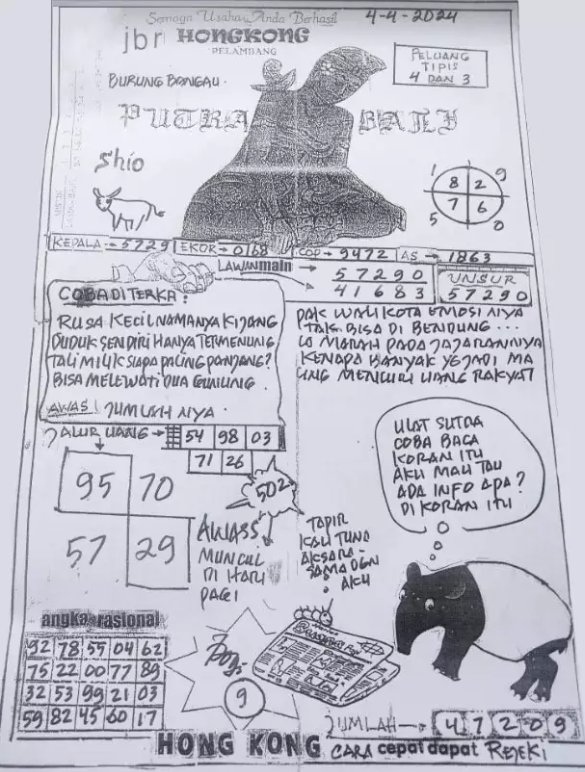 Semoga Usaha Anda Berhasil
4-4-2024
jbr HONGKONG
PELAMBANG
PELUANG
TIPIS
4 DAN 3
BURUNG BANGAU.
PUTRA BALI
Shio
1 9
8 2
7 6
5 0
KEPALA → 5729 EKOR → 0168 COP → 9472 AS → 1863
LAWAN main → 57290
41683
UNSUR
57290
COBA DI TERKA:
RUSA KECIL NAMANYA KIJANG
DUDUK SENDIRI HANYA TERMENUNG
TALI MILIK SIAPA PALING PANJANG?
BISA MELEWATI DUA GUNUNG.
AWAS! JUMLAH NIYA.
PAK WALI KOTA EMOSI NIYA
TAK BISA DI BENDUNG...
IA MARAH PADA JAJARANNYA
KENAPA BANYAK YG JADI MA
LING MENCURI UANG RAKYAT
JALUR UANG → 54 98 03
71 26
95 70
57 29
502
AWASS
MUNCUL
DI HARI
PAGI
ULAT SUTRA
COBA BACA
KORAN ITU
AKU MAU TAU
ADA INFO APA?
DI KORAN ITU
TAPIR
KAU TUNA
AKSARA
SAMA DGN
AKU
angka rasional
92 78 55 04 62
75 22 00 77 89
32 53 99 21 03
59 82 45 60 17
9
JUMLAH → 4 7 2 0 9
HONG KONG CARA cepat dapat REJEKI